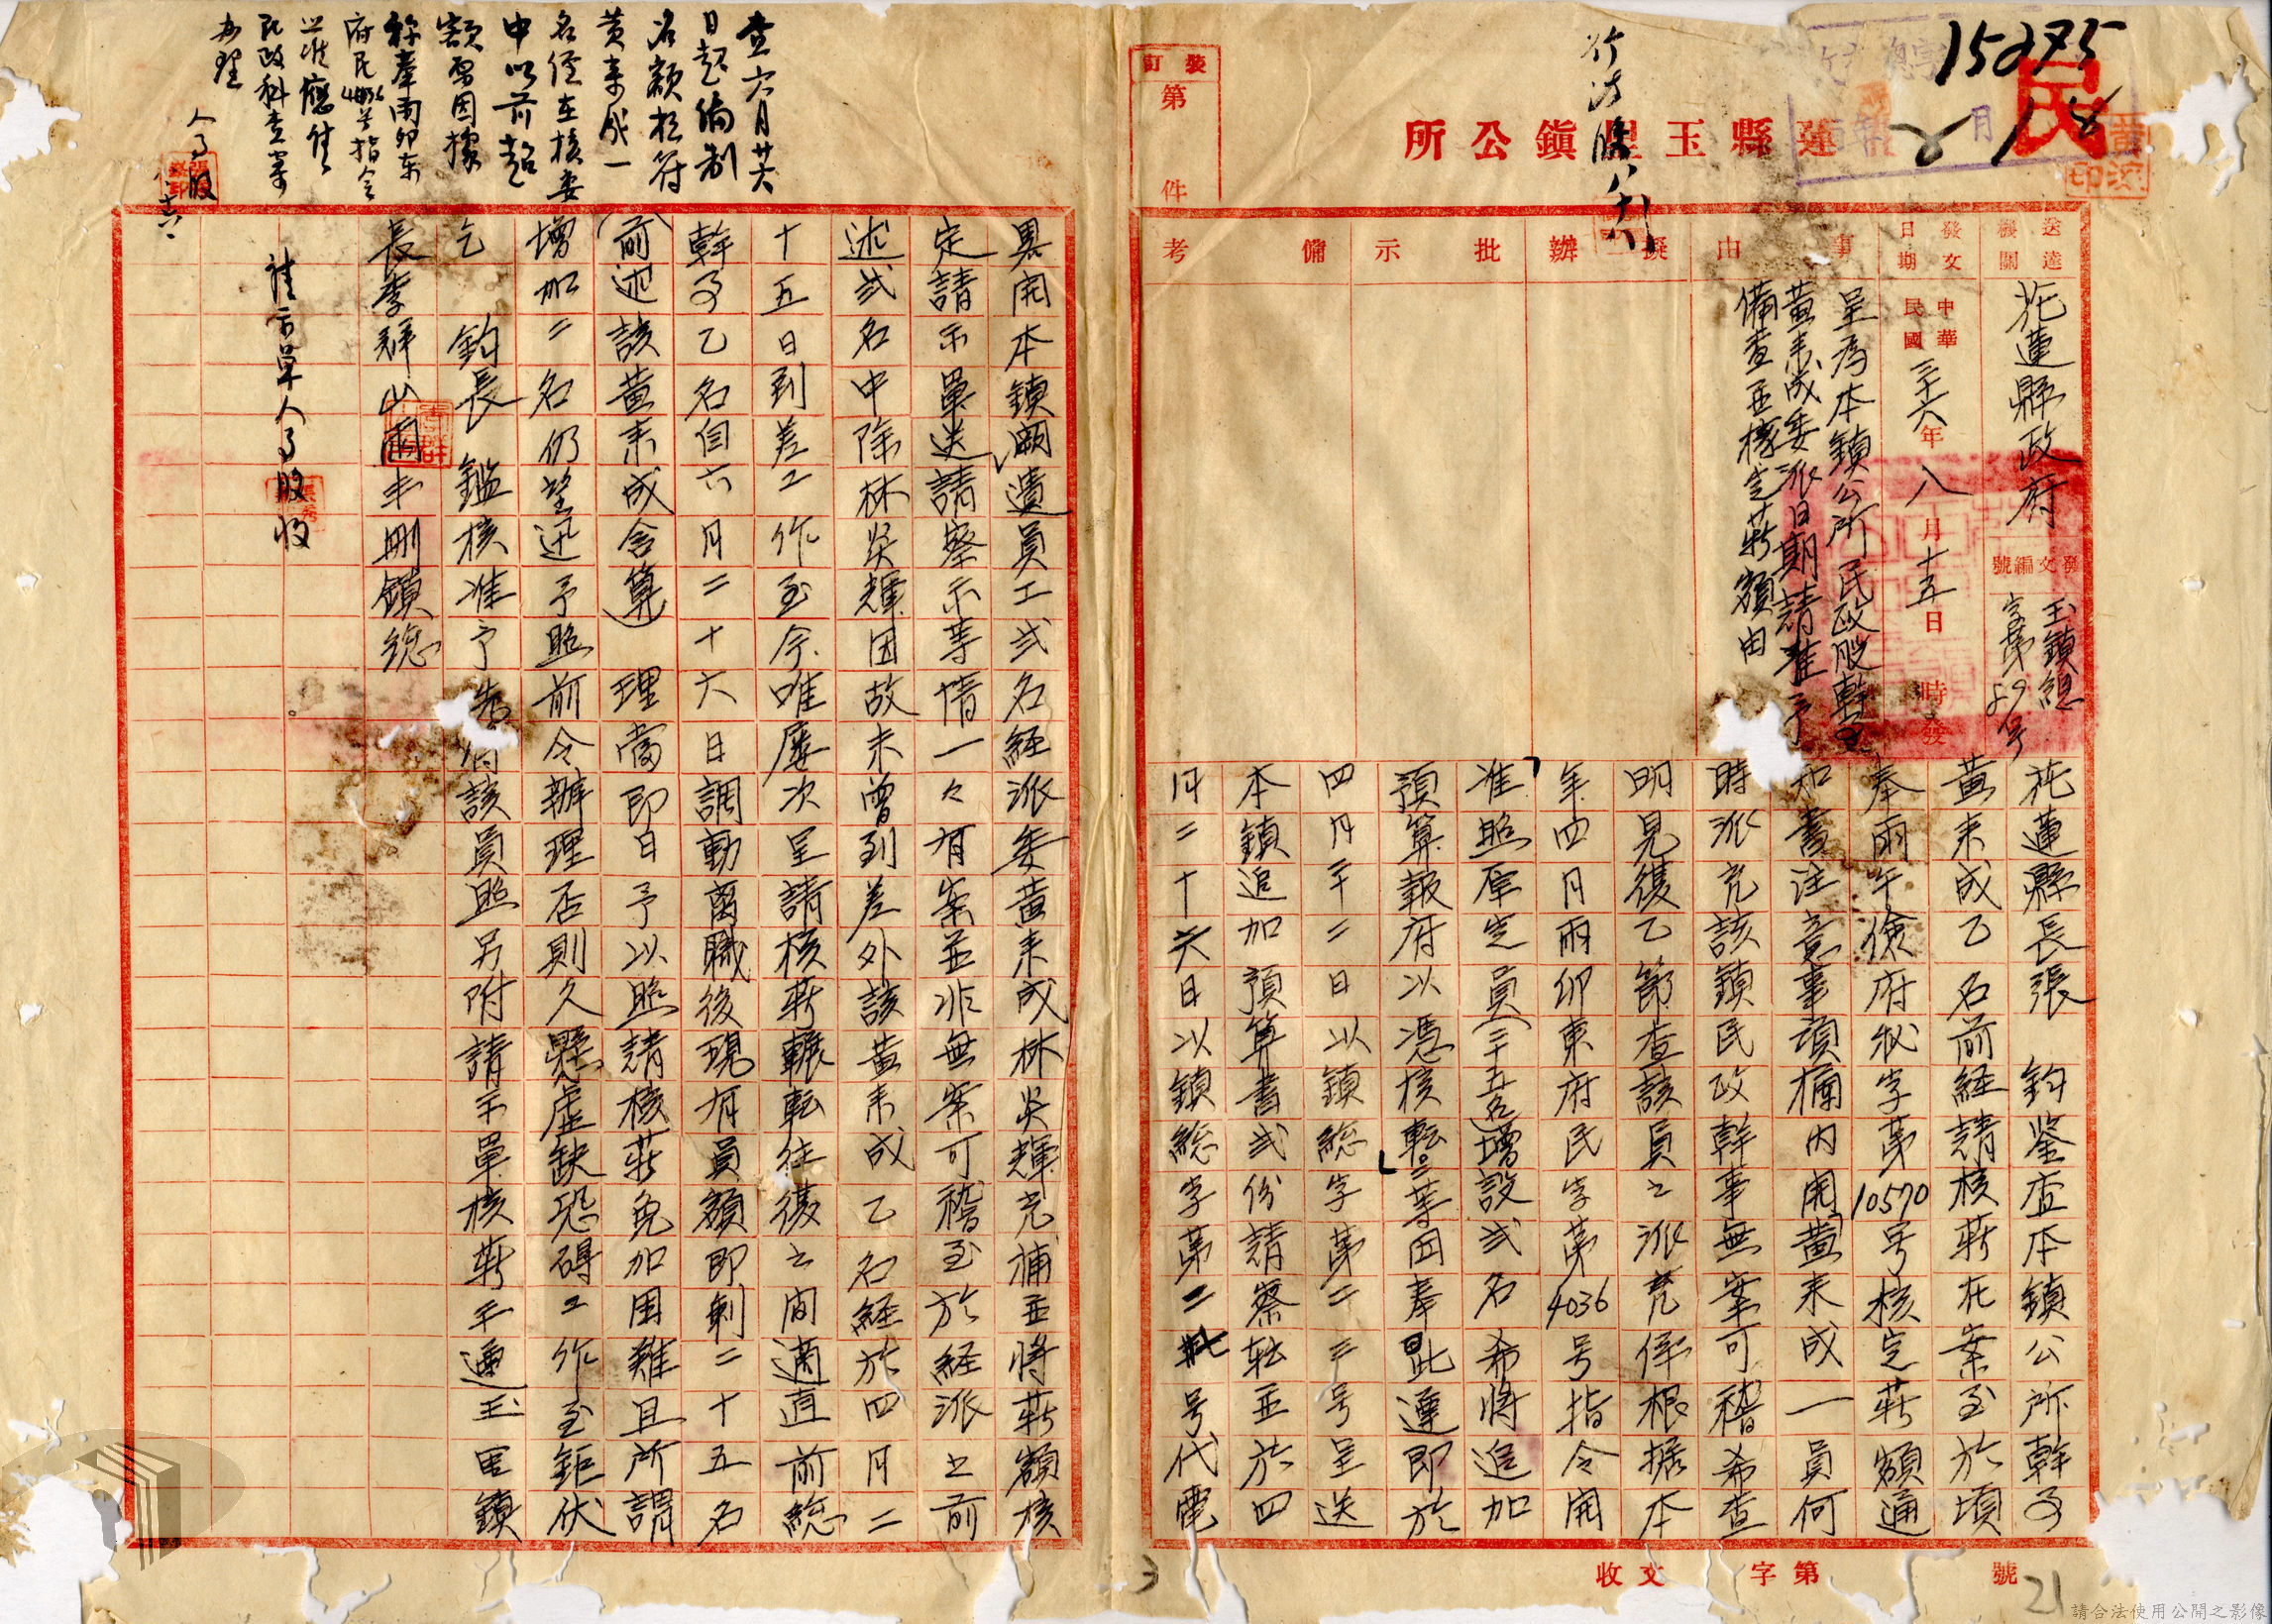 15275
民
8 月 18
花蓮縣玉里鎮公所
裝訂
第 件
送達機關
花蓮縣政府
發文編號
玉鎮總字第59号
發文日期
中華民國三十六年八月十五日 時發
事由
呈為本鎮公所民政股幹事
黃耒成委派日期請准予
備查並核定薪額由
擬辦
批示
備考
花蓮縣長張 鈞鉴查本鎮公所幹事
黃耒成乙名前経請核薪在案至於頃
奉兩午儉府秘字第10570号核定薪額通
知書注意事項欄內開黃耒成一員何
時派充該鎮民政幹事無案可稽希查
明見復乙節查該員之派充係根据本
年四月兩卯東府民字第4036号指令開
准照原定員(三十五名)增設弍名希將追加
預算報府以憑核転」等因奉此遵即於
四月三十二日以鎮總字第二三号呈送
本鎮追加預算書弍份請察転並於四
月二十六日以鎮総字第二 号代電
異開本鎮遺員工弍名経派委黃耒成林炎輝充補並将薪額核
定請示單送請察示等情一々有案並非無案可稽至於経派之前
述弍名中除林炎輝因故未曾到差外該黃耒成乙名経於四月二
十五日到差工作至今唯屡次呈請核薪輾転往復之间適直前総
幹事乙名自六月二十六日調動离職後現有員額即剩二十五名
(前述該黃耒成含算)理當即日予以照請核薪免加困難且所謂
增加二名仍望迅予照前令辦理否則久懸虚缺恐碍工作至鉅伏
乞 鈞長鑑核准予 該員照另附請示單核薪 玉里鎮
長李 山 鎮総
請示單人事股收
查六月廿六
日起編制
名額相符
黃耒成一
名徑在核委
中以前超
額原因據
稱奉兩卯东
府民4036号指令
照准應准
民政科查案
办理
人事股
收文 字第 號
21
3
請合法使用公開之影像